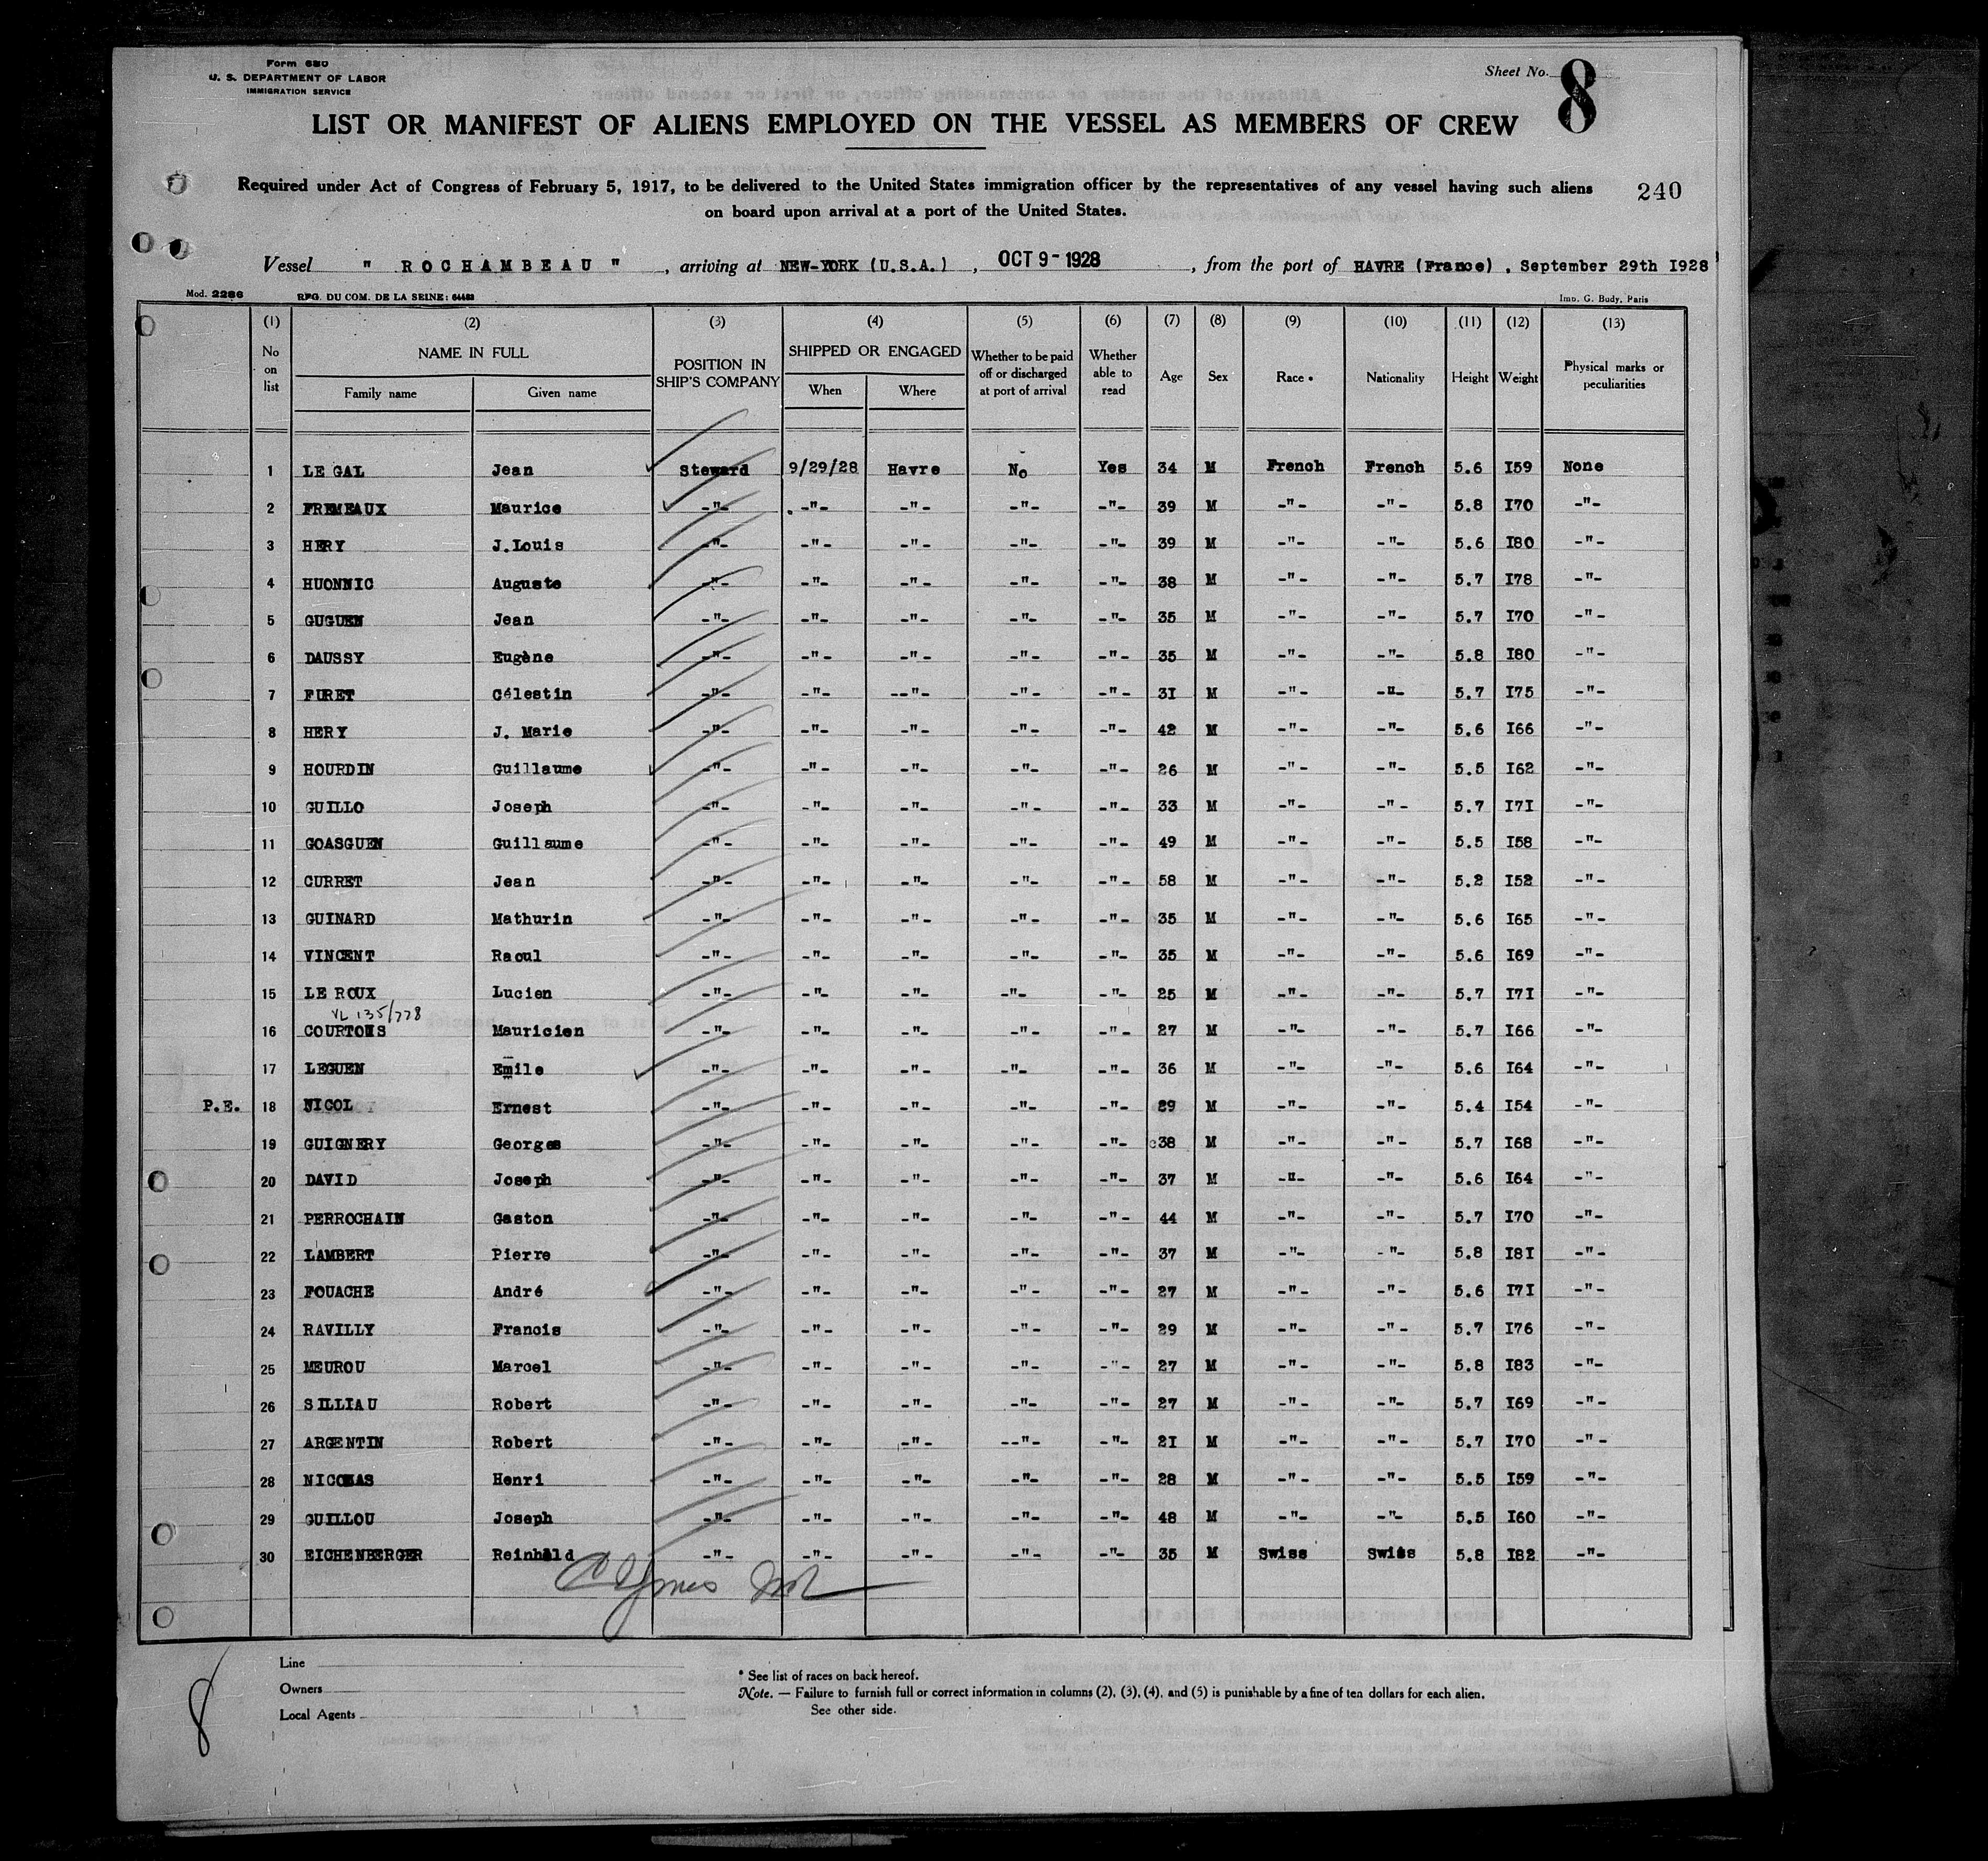 Form 680
U. S. DEPARTMENT OF LABOR
IMMIGRATION SERVICE
Sheet No. 8
LIST OR MANIFEST OF ALIENS EMPLOYED ON THE VESSEL AS MEMBERS OF CREW
Required under Act of Congress of February 5, 1917, to be delivered to the United States immigration officer by the representatives of any vessel having such aliens
on board upon arrival at a port of the United States.
240
Vessel " ROCHAMBEAU " , arriving at NEW-YORK (U.S.A.) , OCT 9- 1928 , from the port of HAVRE (France) , September 29th I928
Mod. 2286 RPG. DU COM. DE LA SEINE: 64483 Imp. G. Budy, Paris
(1) (2) (3) (4) (5) (6) (7) (8) (9) (10) (11) (12) (13)
No on list NAME IN FULL Family name Given name POSITION IN SHIP'S COMPANY SHIPPED OR ENGAGED When Where Whether to be paid off or discharged at port of arrival Whether able to read Age Sex Race * Nationality Height Weight Physical marks or peculiarities
1 LE GAL Jean Steward 9/29/28 Havre No Yes 34 M French French 5.6 I59 None
2 FREMEAUX Maurice -"- -"- -"- -"- -"- 39 M -"- -"- 5.8 I70 -"-
3 HERY J.Louis -"- -"- -"- -"- -"- 39 M -"- -"- 5.6 I80 -"-
4 HUONNIC Auguste -"- -"- -"- -"- -"- 38 M -"- -"- 5.7 I78 -"-
5 GUGUEN Jean -"- -"- -"- -"- -"- 35 M -"- -"- 5.7 I70 -"-
6 DAUSSY Eugène -"- -"- -"- -"- -"- 35 M -"- -"- 5.8 I80 -"-
7 FURET Célestin -"- -"- --"- -"- -"- 3I M -"- -"- 5.7 I75 -"-
8 HERY J. Marie -"- -"- -"- -"- -"- 42 M -"- -"- 5.6 I66 -"-
9 HOURDIN Guillaume -"- -"- -"- -"- -"- 26 M -"- -"- 5.5 I62 -"-
10 GUILLO Joseph -"- -"- -"- -"- -"- 33 M -"- -"- 5.7 I7I -"-
11 GOASGUEN Guillaume -"- -"- -"- -"- -"- 49 M -"- -"- 5.5 I58 -"-
12 CURRET Jean -"- -"- -"- -"- -"- 58 M -"- -"- 5.2 I52 -"-
13 GUINARD Mathurin -"- -"- -"- -"- -"- 35 M -"- -"- 5.6 I65 -"-
14 VINCENT Raoul -"- -"- -"- -"- -"- 35 M -"- -"- 5.6 I69 -"-
15 LE ROUX Lucien -"- -"- -"- -"- -"- 25 M -"- -"- 5.7 I7I -"-
VL 135/778
16 COURTOIS Mauricien -"- -"- -"- -"- -"- 27 M -"- -"- 5.7 I66 -"-
17 LEGUEN Emile -"- -"- -"- -"- -"- 36 M -"- -"- 5.6 I64 -"-
P.E. 18 NICOL Ernest -"- -"- -"- -"- -"- 29 M -"- -"- 5.4 I54 -"-
19 GUIGNERY Georges -"- -"- -"- -"- -"- 38 M -"- -"- 5.7 I68 -"-
20 DAVID Joseph -"- -"- -"- -"- -"- 37 M -"- -"- 5.6 I64 -"-
21 PERROCHAIN Gaston -"- -"- -"- -"- -"- 44 M -"- -"- 5.7 I70 -"-
22 LAMBERT Pierre -"- -"- -"- -"- -"- 37 M -"- -"- 5.8 I8I -"-
23 FOUACHE André -"- -"- -"- -"- -"- 27 M -"- -"- 5.6 I7I -"-
24 RAVILLY Francis -"- -"- -"- -"- -"- 29 M -"- -"- 5.7 I76 -"-
25 MEUROU Marcel -"- -"- -"- -"- -"- 27 M -"- -"- 5.8 I83 -"-
26 SILLIAU Robert -"- -"- -"- -"- -"- 27 M -"- -"- 5.7 I69 -"-
27 ARGENTIN Robert -"- -"- -"- --"- -"- 2I M -"- -"- 5.7 I70 -"-
28 NICOLAS Henri -"- -"- -"- -"- -"- 28 M -"- -"- 5.5 I59 -"-
29 GUILLOU Joseph -"- -"- -"- -"- -"- 48 M -"- -"- 5.5 I60 -"-
30 EICHENBERGER Reinhold -"- -"- -"- -"- -"- 35 M Swiss Swiss 5.8 I82 -"-
Line
Owners
Local Agents
* See list of races on back hereof.
Note. — Failure to furnish full or correct information in columns (2), (3), (4), and (5) is punishable by a fine of ten dollars for each alien.
See other side.
8